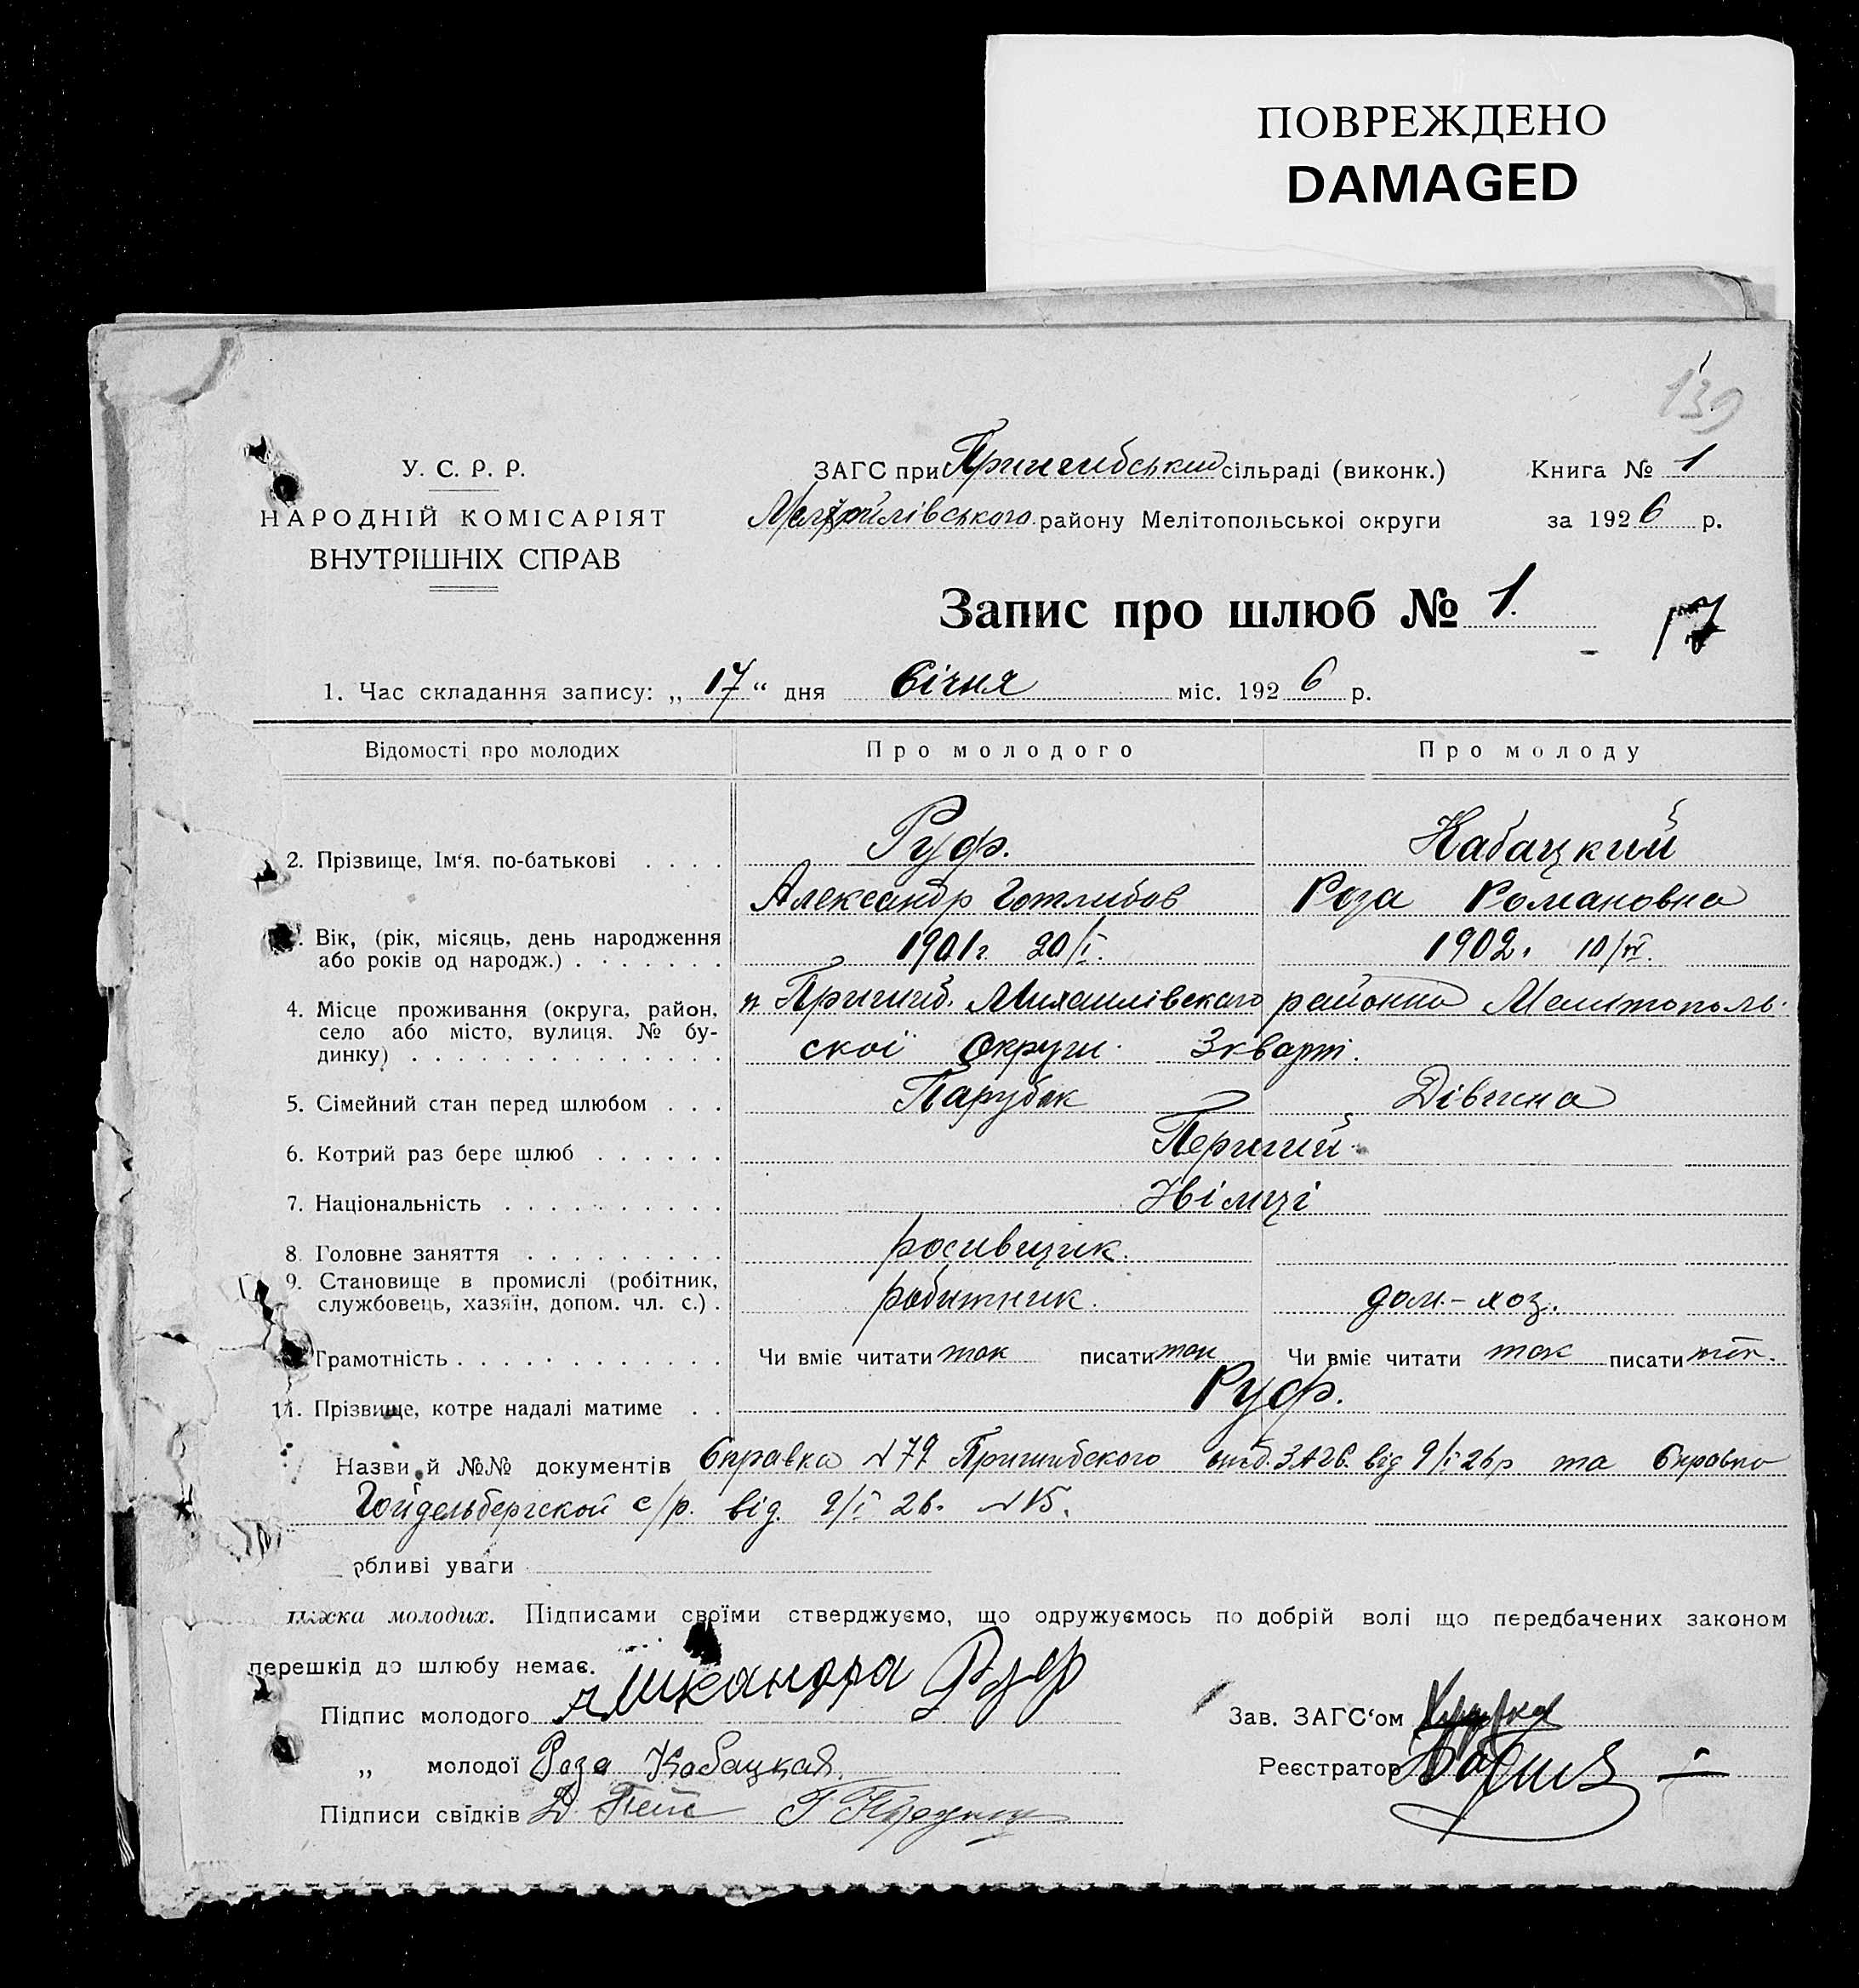 ПОВРЕЖДЕНО
DAMAGED
139
У. С. Р. Р.
НАРОДНІЙ КОМІСАРІЯТ
ВНУТРІШНІХ СПРАВ
ЗАГС при Пришибський сільраді (виконк.) Книга № 1
району Мелітопольської округи за 1926 р.
Запис про шлюб № 1.
17
1. Час складання запису: „ 17 “ дня Січня міс. 1926 р.
Відомості про молодих Про молодого Про молоду
2. Прізвище, Ім‘я. по-батькові . . . . Руф. Кабацкий
Александр Готлибов Роза Романовна
Вік, (рік, місяць, день народження
або років од народж.) . . . . . . . 1901г 20/I. 1902. 10/
4. Місце проживання (округа, район,
село або місто, вулиця. № бу-
динку) . . . . . . . . . . . . . .
п. Пришиб. Михаилівскаго района Мелитополь-
скоі Округи. 3 кварт.
5. Сімейний стан перед шлюбом . . . Парубок Дівчина
6. Котрий раз бере шлюб . . . . . . Перший
7. Національність . . . . . . . . . . Німці
8. Головне заняття . . . . . . . . .
9. Становище в промислі (робітник,
службовець, хазяїн, допом. чл. с.) . робитник. дом.-хоз.
Грамотність . . . . . . . . . . . . Чи вміє читати так писати так Чи вміє читати так писати так.
11. Прізвище, котре надалі матиме . . Руф.
Назви й №№ документів Справка №79 Пришибского від 9/I 26р та Справка
Гейдельбергской с/р. від. 9/I 26. №15.
обливі уваги
молодих. Підписами своїми стверджуємо, що одружуємось по добрій волі що передбачених законом
перешкід до шлюбу немає.
Підпис молодого Руф Зав. ЗАГС‘ом
„ молодої Роза Кабацкая Реєстратор
Підписи свідків